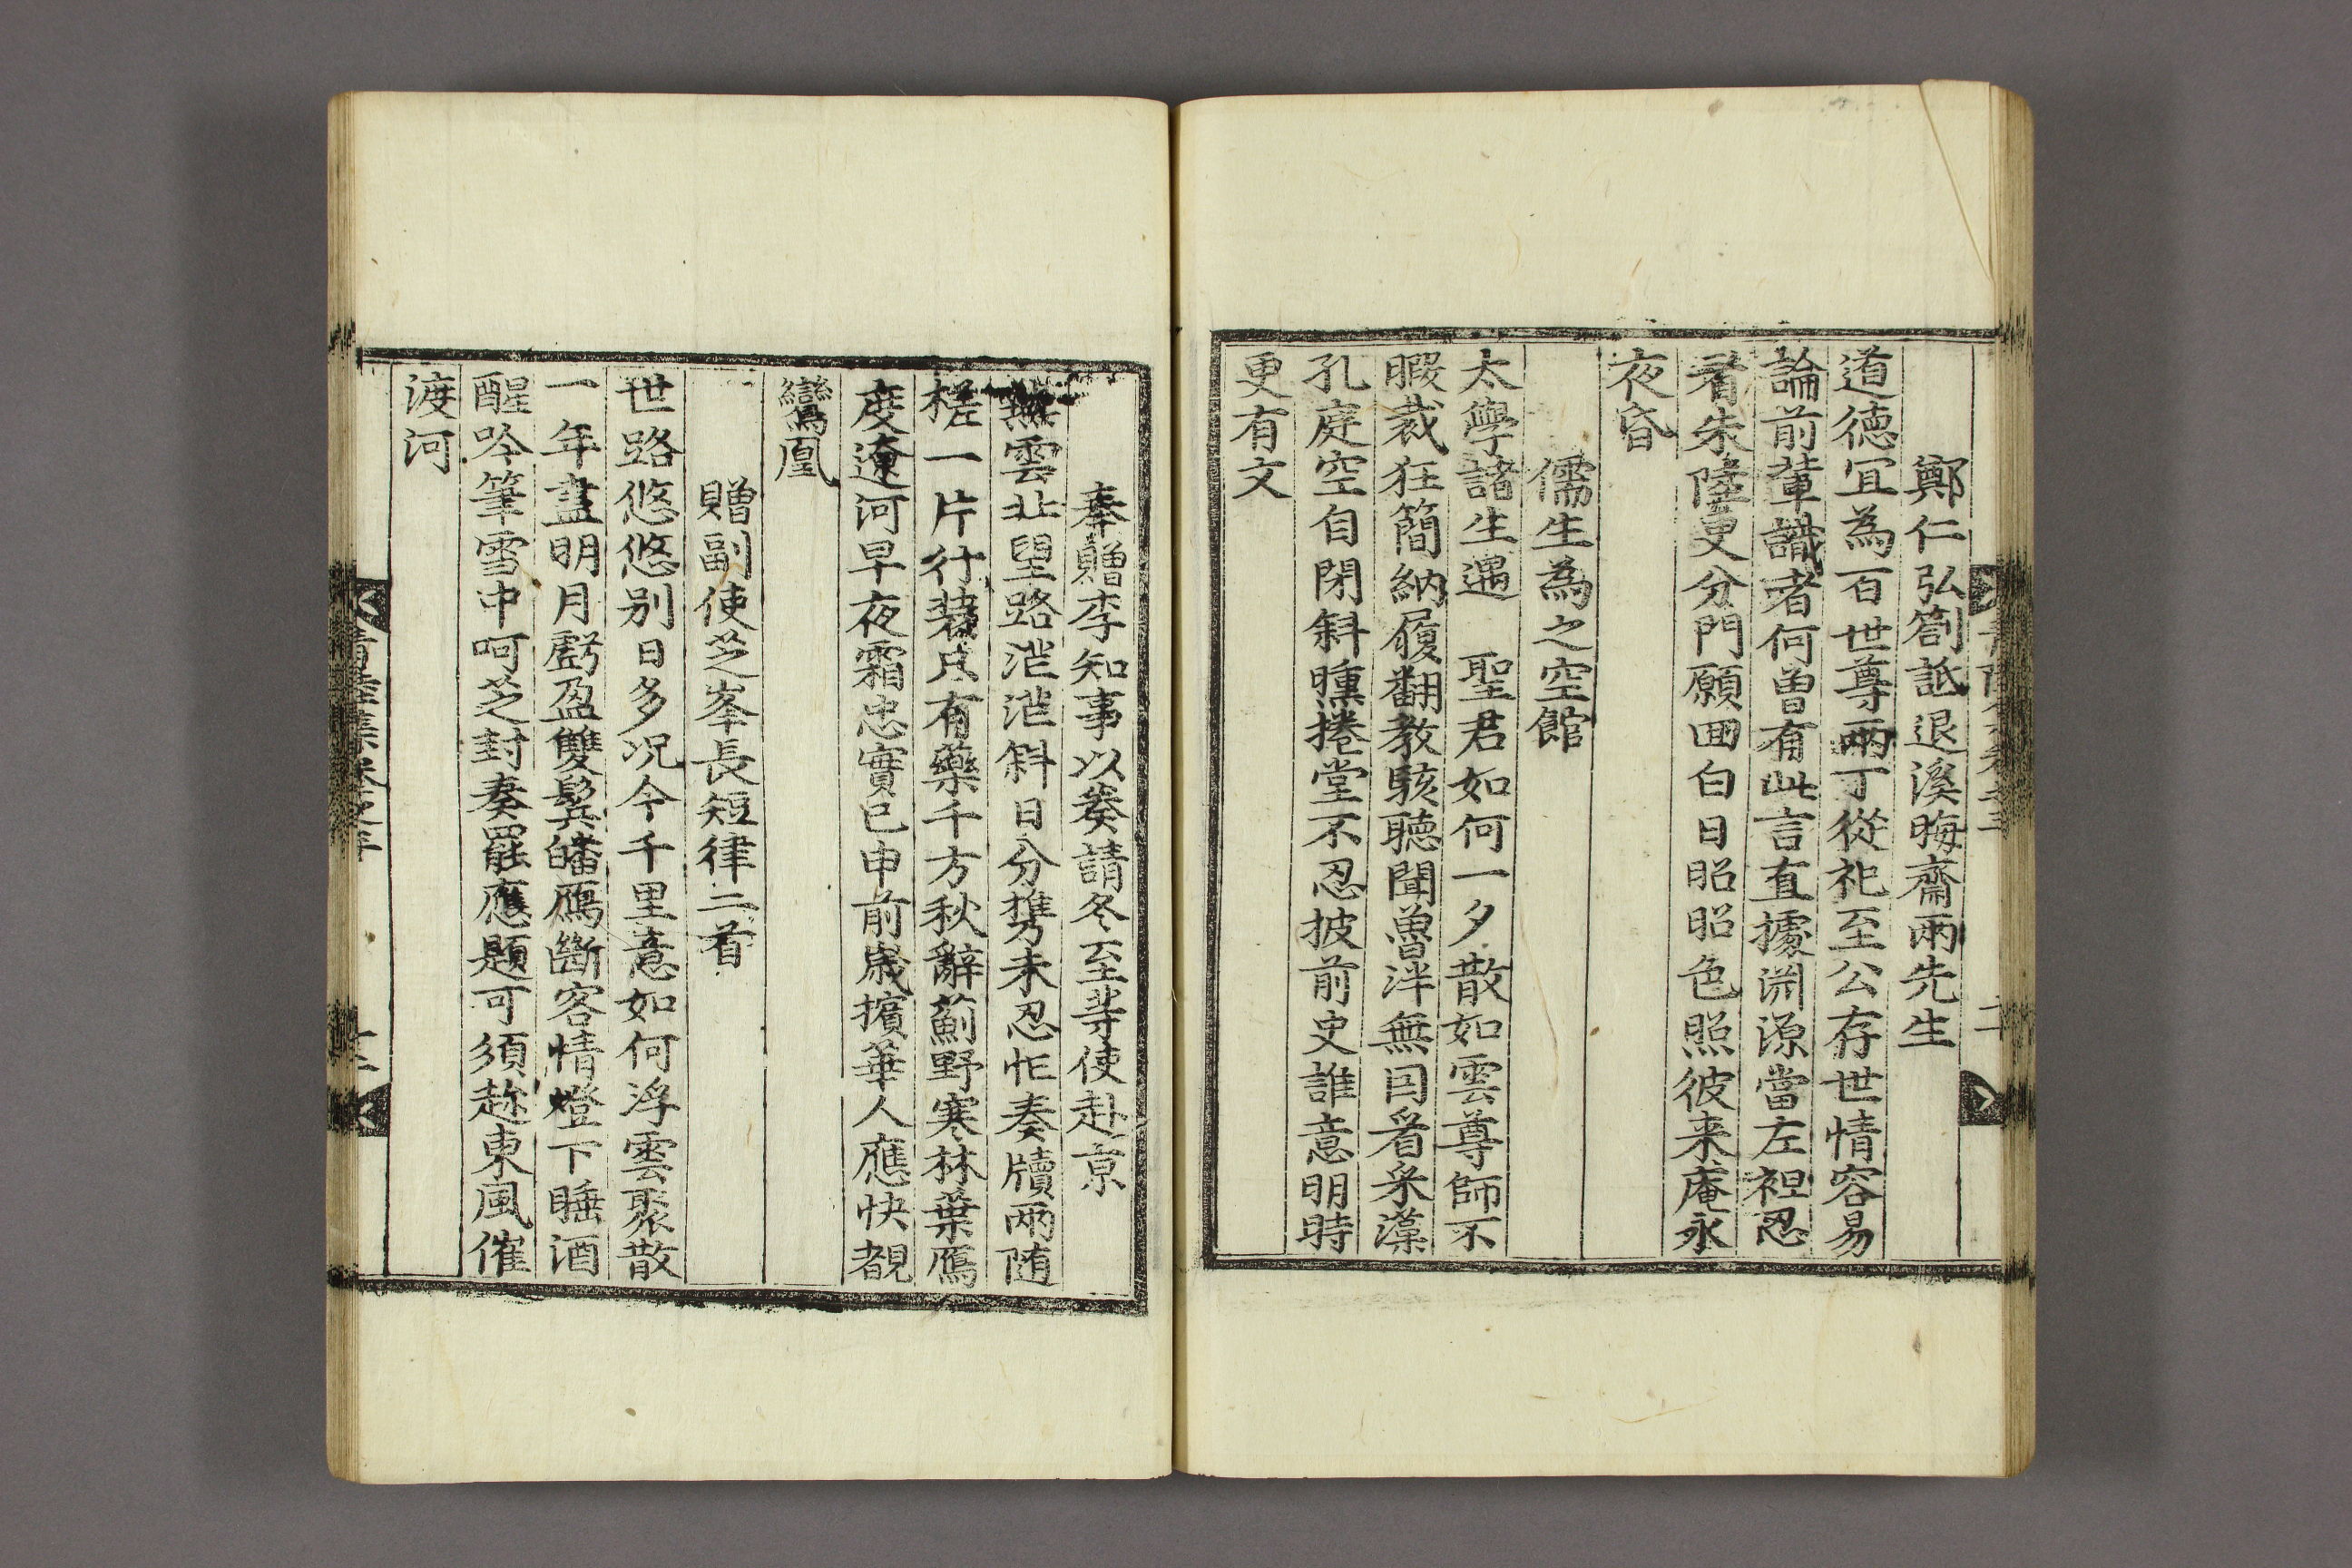 鄭仁弘劄詆退溪晦齋兩先生
道德冝為百世尊兩丁從祀至公存世情容易
論前輩識者何曾有此言直據淵源當左袒忍
看朱陸更分門願囬白日昭昭色照彼来庵永
夜昏
儒生為之空館
太學諸生遇 聖君如何一夕散如雲尊師不
暇裁狂簡納履翻教駭聽聞魯泮無因看采藻
孔庭空自閉斜曛捲堂不忍披前史誰意明時
更有文
奉贈李知事以奏請冬至等使赴京
雲北望路茫茫斜日分携未忍忙奏牘兩随
槎一片行裝只有藥千方秋辭薊野寒林葉鴈
度遼河早夜霜忠實已申前歲擯華人應快覩
鸞凰
贈副使芝峯長短律二首
世路悠悠別日多况今千里意如何浮雲聚散
一年盡明月虧盈雙鬂皤鴈斷客情燈下睡酒
醒吟筆雪中呵芝封奏罷應題可須趂東風催
渡河
集卷之